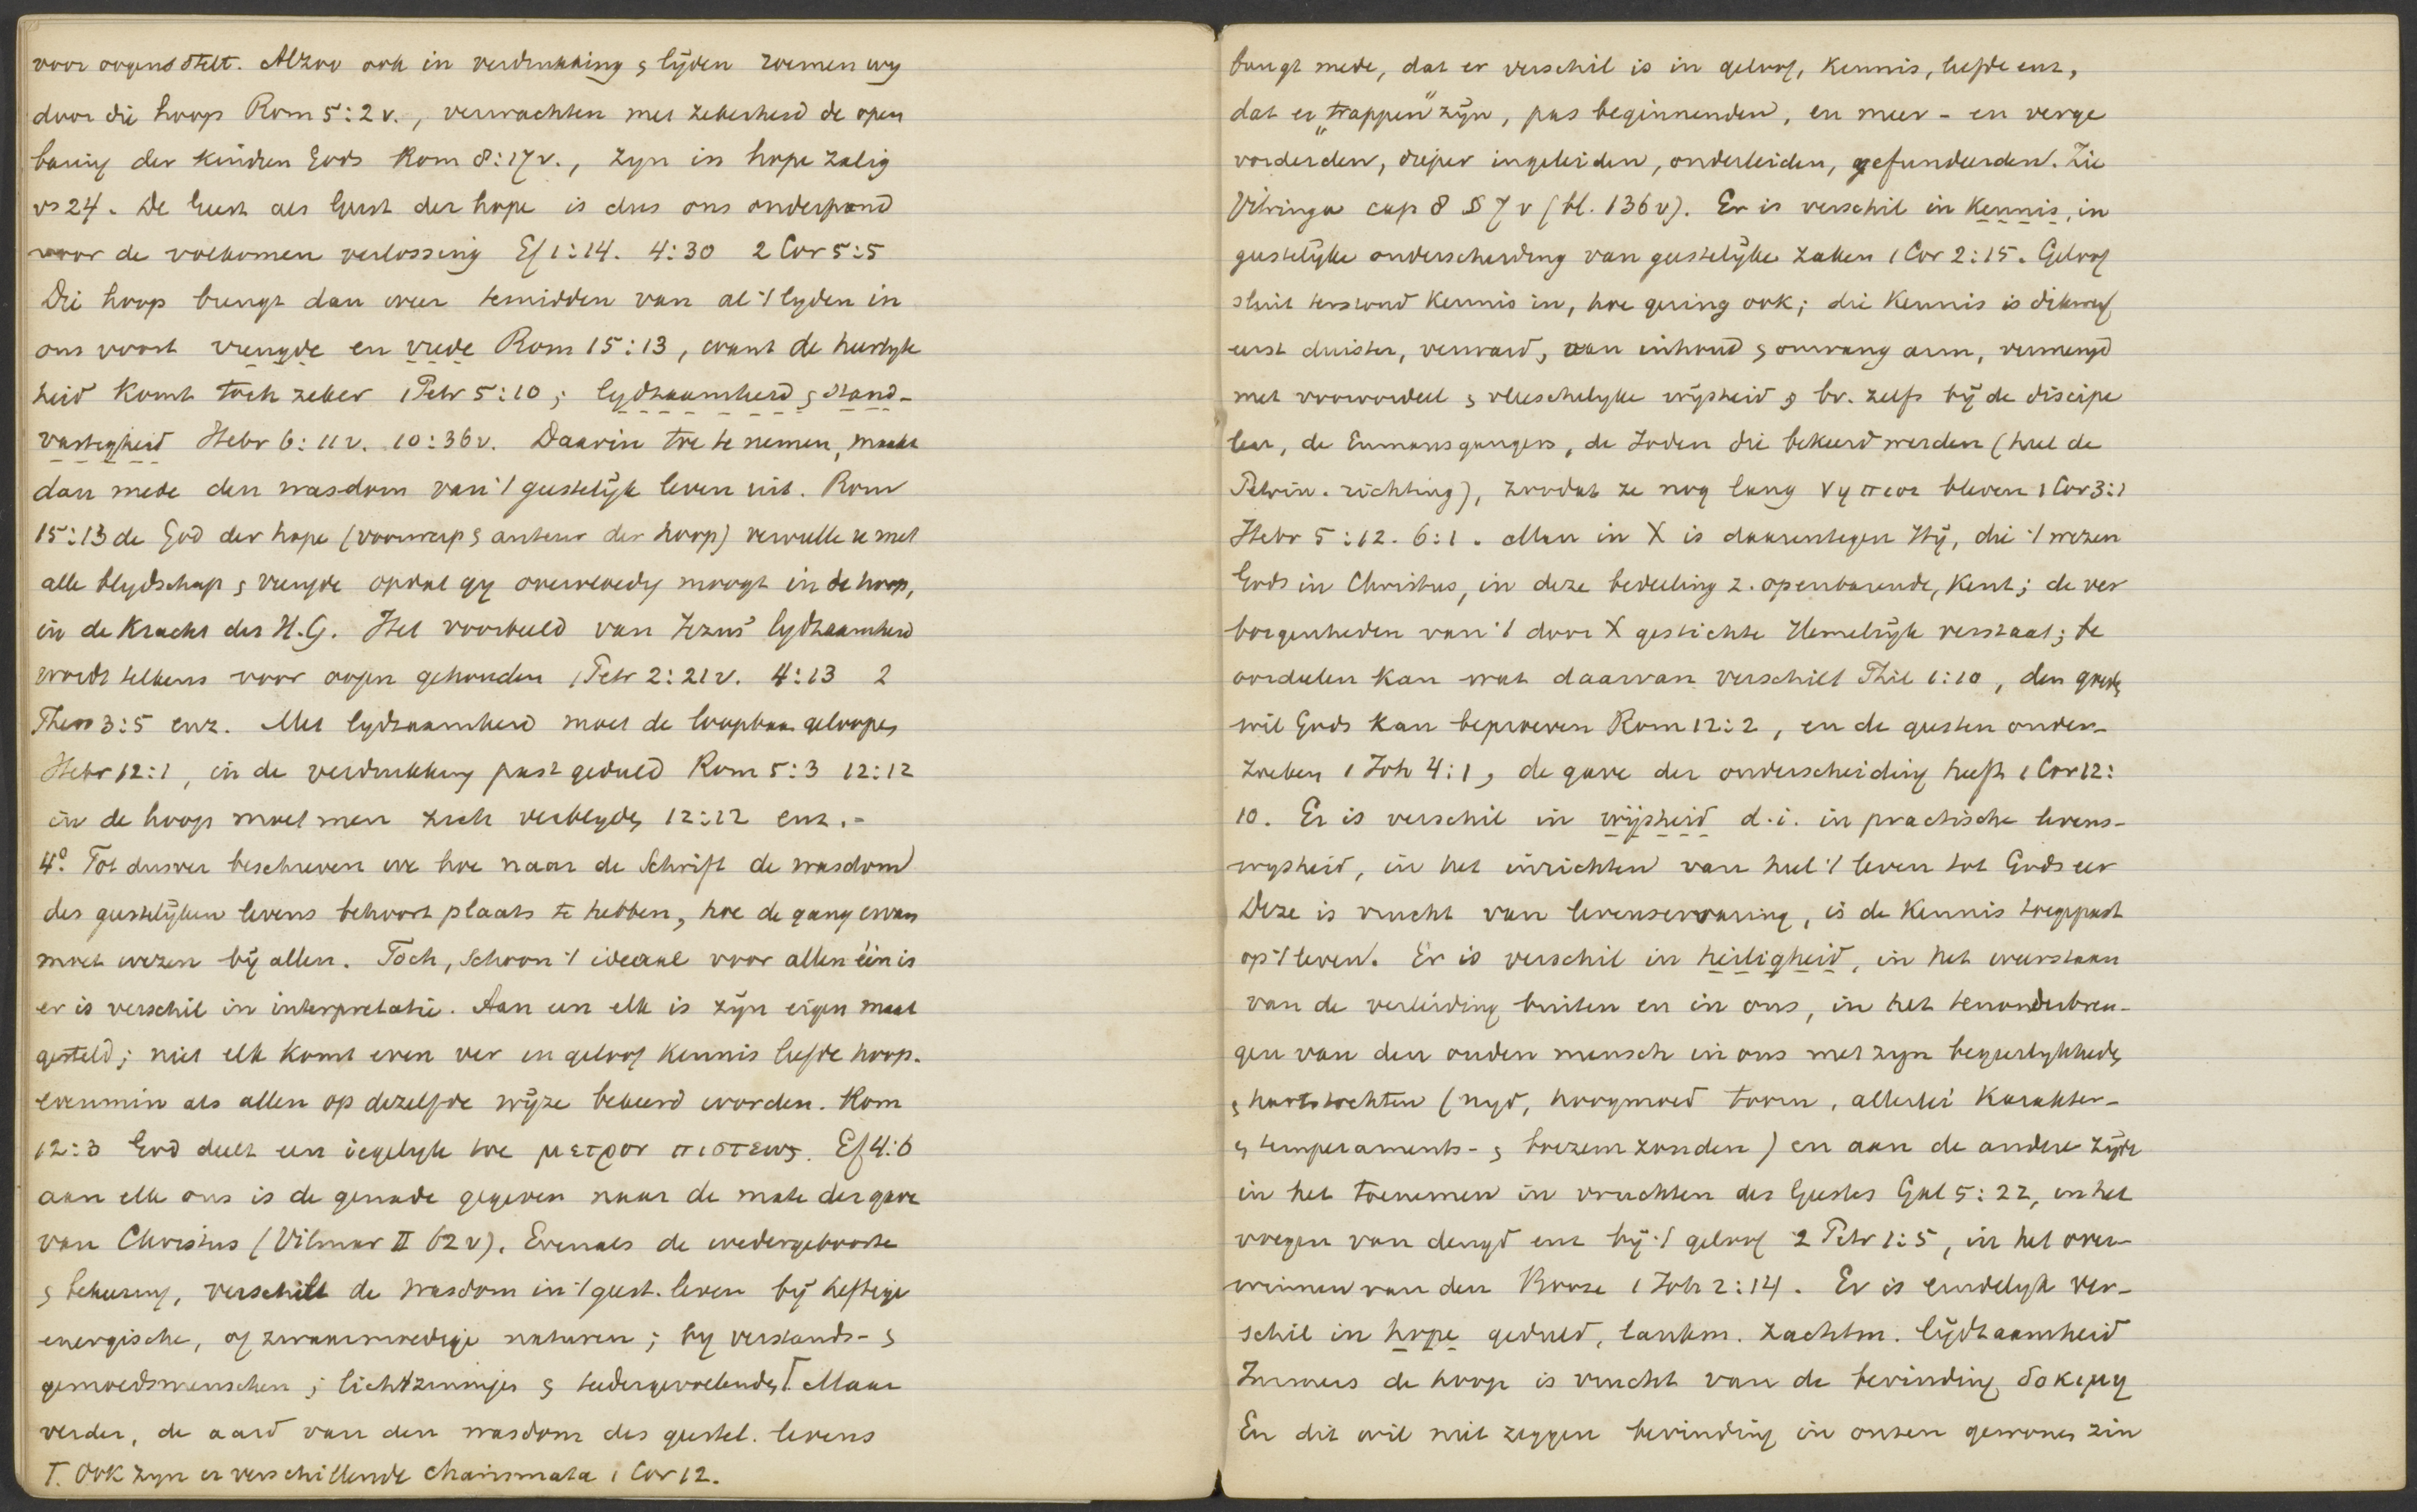 voor oogen stelt. Alzoo ook in verdrukking & lijden roemen wy
door die hoop Rom 5:2 v., verwachten met zekerheid de open
baring der kindren Gods Rom 8:17 v., zyn in hope zalig
vs 24. De Geest als Geest der hope is dus ons onderpand
voor de volkomen verlossing Ef 1:14. 4:30 2 Cor 5:5
Die hoop brengt dan weer temidden van al 't lyden in
ons voort vreugde en vrede Rom 15:13, want de heerlyk
heid komt toch zeker 1 Petr 5:10; lydzaamheid & stand-
vastigheid Hebr 6:11 v. 10:36 v. Daarin toe te nemen, maakt
dan mede den wasdom van 't geestelijk leven uit. Rom
15:13 de God der hope (voorwerp & auteur der hoop) vervulle u met
alle blydschap & vreugde opdat gy overvloedig moogt in de hoop,
in de kracht des H.G. Het voorbeeld van Jezus' lydzaamheid
wordt telkens voor oogen gehouden 1 Petr 2:21 v. 4:13 2
Thess 3:5 enz. Met lydzaamheid moet de loopbaan geloopen
Hebr 12:1, in de verdrukking past geduld Rom 5:3 12:12
in de hoop moet men zich verblyden 12:12 enz.-
4° Tot dusver beschreven we hoe naar de Schrift de wasdom
des geestelijken levens behoort plaats te hebben, hoe de gang ervan
moet wezen bij allen. Toch, schoon 't ideaal voor allen één is
er is verschil in interpretatie. Aan een elk is zijn eigen maat
gesteld; niet elk komt even ver in geloof kennis liefde hoop.
evenmin als allen op dezelfde wijze bekeerd worden. Rom
12:3 God deelt een iegelyk toe μετρον πιστεως. Ef 4:6
aan elk ons is de genade gegeven naar de mate der gave
van Christus (Vilmar II 62 v). Evenals de wedergeboorte
& bekeering, verschilt de wasdom in 't geest. leven bij heftige
energische, of zwaarmoedige naturen; by verstands- &
gemoedsmenschen; lichtzinniger & teedergevoelenden T. Maar
verder, de aard van den wasdom des geestel. levens
T. Ook zyn er verschillende charismata 1 Cor 12.
brengt mede, dat er verschil is in geloof, kennis, liefde enz,
dat er „trappen" zijn, pas beginnenden, en meer- en verge
vorderden, dieper ingeleiden, onderleiden, gefundeerden. Zie
Vitringa cap 8 § 7 v (bl. 136 v). Er is verschil in kennis, in
geestelijke onderscheiding van geestelijke zaken 1 Cor 2:15. Geloof
sluit terstond kennis in, hoe gering ook; die kennis is dikwerf
eerst duister, verward, aan inhoud & omvang arm, vermengd
met vooroordeel & vleeschelyke wijsheid & bv. zelfs bij de discipe
len, de Emmausgangers, de Joden die bekeerd werden (heel de
Petrin. richting), zoodat ze nog lang νηπιοι bleven 1 Cor 3:1
Hebr 5:12. 6:1. Man in X is daarentegen Hij, die 't wezen
Gods in Christus, in deze bedeeling z. openbarende, kent; de ver
borgenheden van 't door X gestichte Hemelrijk verstaat; be
oordeelen kan wat daarvan verschilt Phil 1:10, den goeden
wil Gods kan beproeven Rom 12:2, en de geesten onder-
zoeken 1 Joh 4:1, de gave der onderscheiding heeft 1 Cor 12:
10. Er is verschil in wijsheid d.i. in practische levens-
wysheid, in het inrichten van heel 't leven tot Gods eer
Deze is vrucht van levenservaring, is de kennis toegepast
op 't leven. Er is verschil in heiligheid, in het weerstaan
van de verleiding buiten en in ons, in het tenonderbren-
gen van den ouden mensch in ons met zyn begeerlykheden
& hartstochten (nyd, hoogmoed toorn, allerlei karakter-
& temperaments- & boezem zonden) en aan de andere zijde
in het toenemen in vruchten des Geestes Gal 5:22, in het
voegen van deugd enz bij 't geloof 2 Petr 1:5, in het over-
winnen van den Booze 1 Joh 2:14. Er is eindelyk ver-
schil in hope geduld, lankm. zachtm. lijdzaamheid
Immers de hoop is vrucht van de bevinding δοκιμη
En dit wil niet zeggen bevinding in onzen gewonen zin